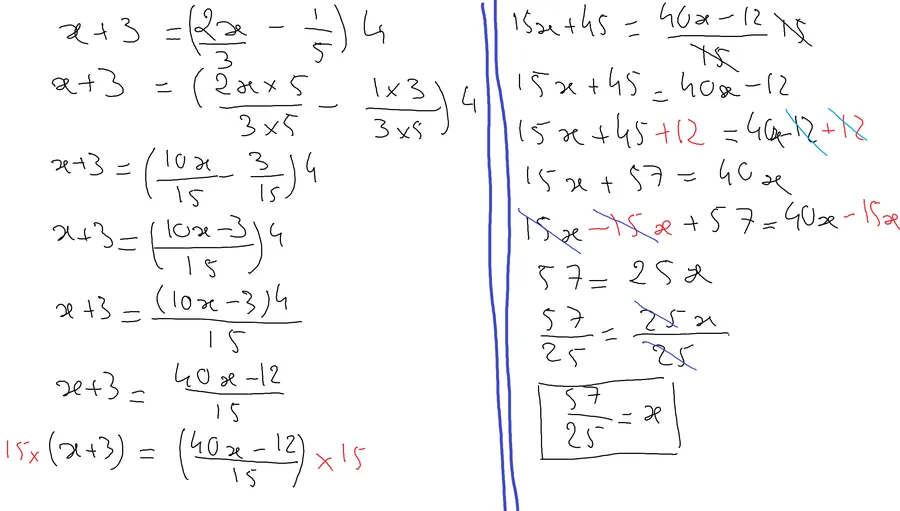 x+3 = (2x/3 - 1/5) 4
x+3 = (2x×5/3×5 - 1×3/3×5) 4
x+3 = (10x/15 - 3/15) 4
x+3 = (10x-3/15) 4
x+3 = (10x-3)4/15
x+3 = 40x-12/15
15× (x+3) = (40x-12/15) ×15
15x+45 = 40x-12/15 15
15x+45 = 40x-12
15x+45+12 = 40x-12+12
15x+57 = 40x
15x-15x+57 = 40x-15x
57 = 25x
57/25 = 25x/25
57/25 = x